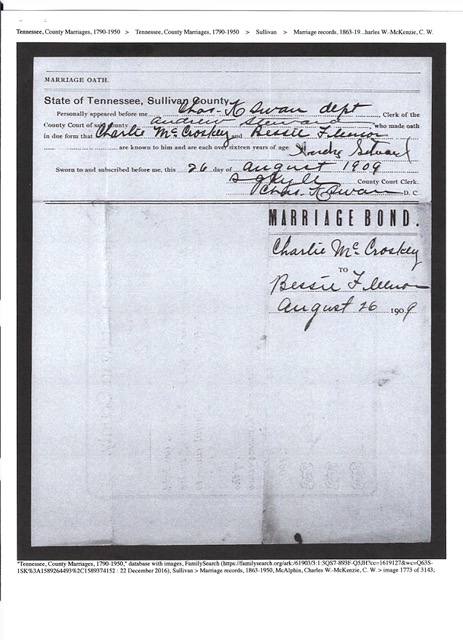 Tennessee, County Marriages, 1790-1950 > Tennessee, County Marriages, 1790-1950 > Sullivan > Marriage records, 1863-19...harles W.-McKenzie, C. W.
MARRIAGE OATH.
State of Tennessee, Sullivan County
Personally appeared before me Chas. K Swan dept Clerk of the
County Court of said county Andrew Steward who made oath
in due form that Charlie McCroskey and Bessie Fleenor
are known to him and are each over sixteen years of age
Sworn to and subscribed before me, this 26 day of August 1909
County Court Clerk.
Chas. K Swan D. C.
MARRIAGE BOND.
Charlie McCroskey
TO
Bessie Fleenor
August 26 1909
"Tennessee, County Marriages, 1790-1950," database with images, FamilySearch (https://familysearch.org/ark:/61903/3:1:3QS7-893F-Q5JH?cc=1619127&wc=Q63S-
1SK%3A1589264493%2C1589374152 : 22 December 2016), Sullivan > Marriage records, 1863-1950, McAlphin, Charles W.-McKenzie, C. W. > image 1773 of 3143;